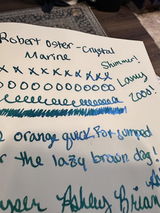 Robert Oster - Crystal
Marine
Shimmer!
xxxxxxxxxx
Lamy
oooooooooooo
2000!
e orange quick fox jumped
r the lazy brown dog!
Ashley Brian